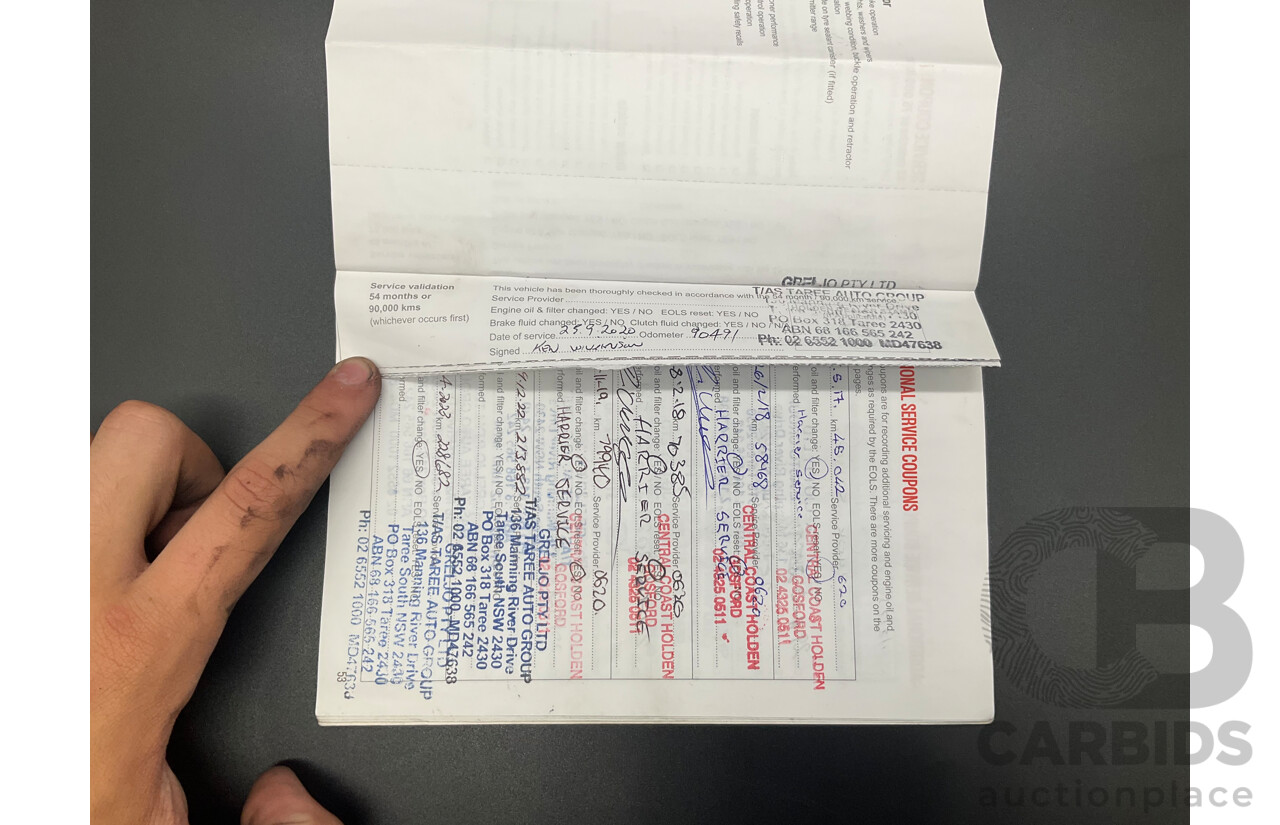 oner performance
trol operation
operation
ding safety recalls
ke operation
hts, washers and wipers
webbing condition, buckle operation and retractor
te on tyre sealant canister (if fitted)
mitter range
Service validation
54 months or
90,000 kms
(whichever occurs first)
GRELJO PTY LTD
This vehicle has been thoroughly checked in accordance with the 54 month / 90,000 km service
T/AS TAREE AUTO GROUP
Service Provider
Engine oil & filter changed: YES / NO EOLS reset: YES / NO
PO Box 318 Taree 2430
Brake fluid changed: YES / NO Clutch fluid changed: YES / NO / N/A
ABN 68 166 565 242
Date of service 25.9.2020 Odometer 90491
Ph: 02 6552 1000 MD47638
Signed KEN WILKINSON
IONAL SERVICE COUPONS
upons are for recording additional servicing and engine oil and
nges as required by the EOLS. There are more coupons on the
pages.
.5.17. km 45.042 Service Provider 620
and filter change: YES / NO EOLS reset YES / NO
erformed Harrier Service
CENTRAL COAST HOLDEN
GOSFORD
02 4325 0511
6/2/18 58468 Service Provider
oil and filter change: YES / NO EOLS reset
ormed HARRIER SERVICE
CENTRAL COAST HOLDEN
GOSFORD
02 4325 0511
8.2.18 km 70385 Service Provider 0620
oil and filter change YES / NO EOLS reset
ormed HARRIER SERVICE
CENTRAL COAST HOLDEN
GOSFORD
02 4325 0511
.11.19. km 79910 Service Provider 0620.
oil and filter change: YES / NO EOLS reset YES / NO
rformed HARRIER SERVICE
CENTRAL COAST HOLDEN
GOSFORD
9.12.22 213552
and filter change: YES / NO
rformed
GRELJO PTY LTD
T/AS TAREE AUTO GROUP
136 Manning River Drive
Taree South NSW 2430
PO Box 318 Taree 2430
ABN 68 166 565 242
Ph: 02 6552 1000 MD47638
4.2023 km 228682
and filter change YES / NO EOLS
ormed
GRELJO PTY LTD
T/AS TAREE AUTO GROUP
136 Manning River Drive
Taree South NSW 2430
PO Box 318 Taree 2430
ABN 68 166 565 242
Ph: 02 6552 1000 MD47638
53
CB
CARBIDS
auctionplace